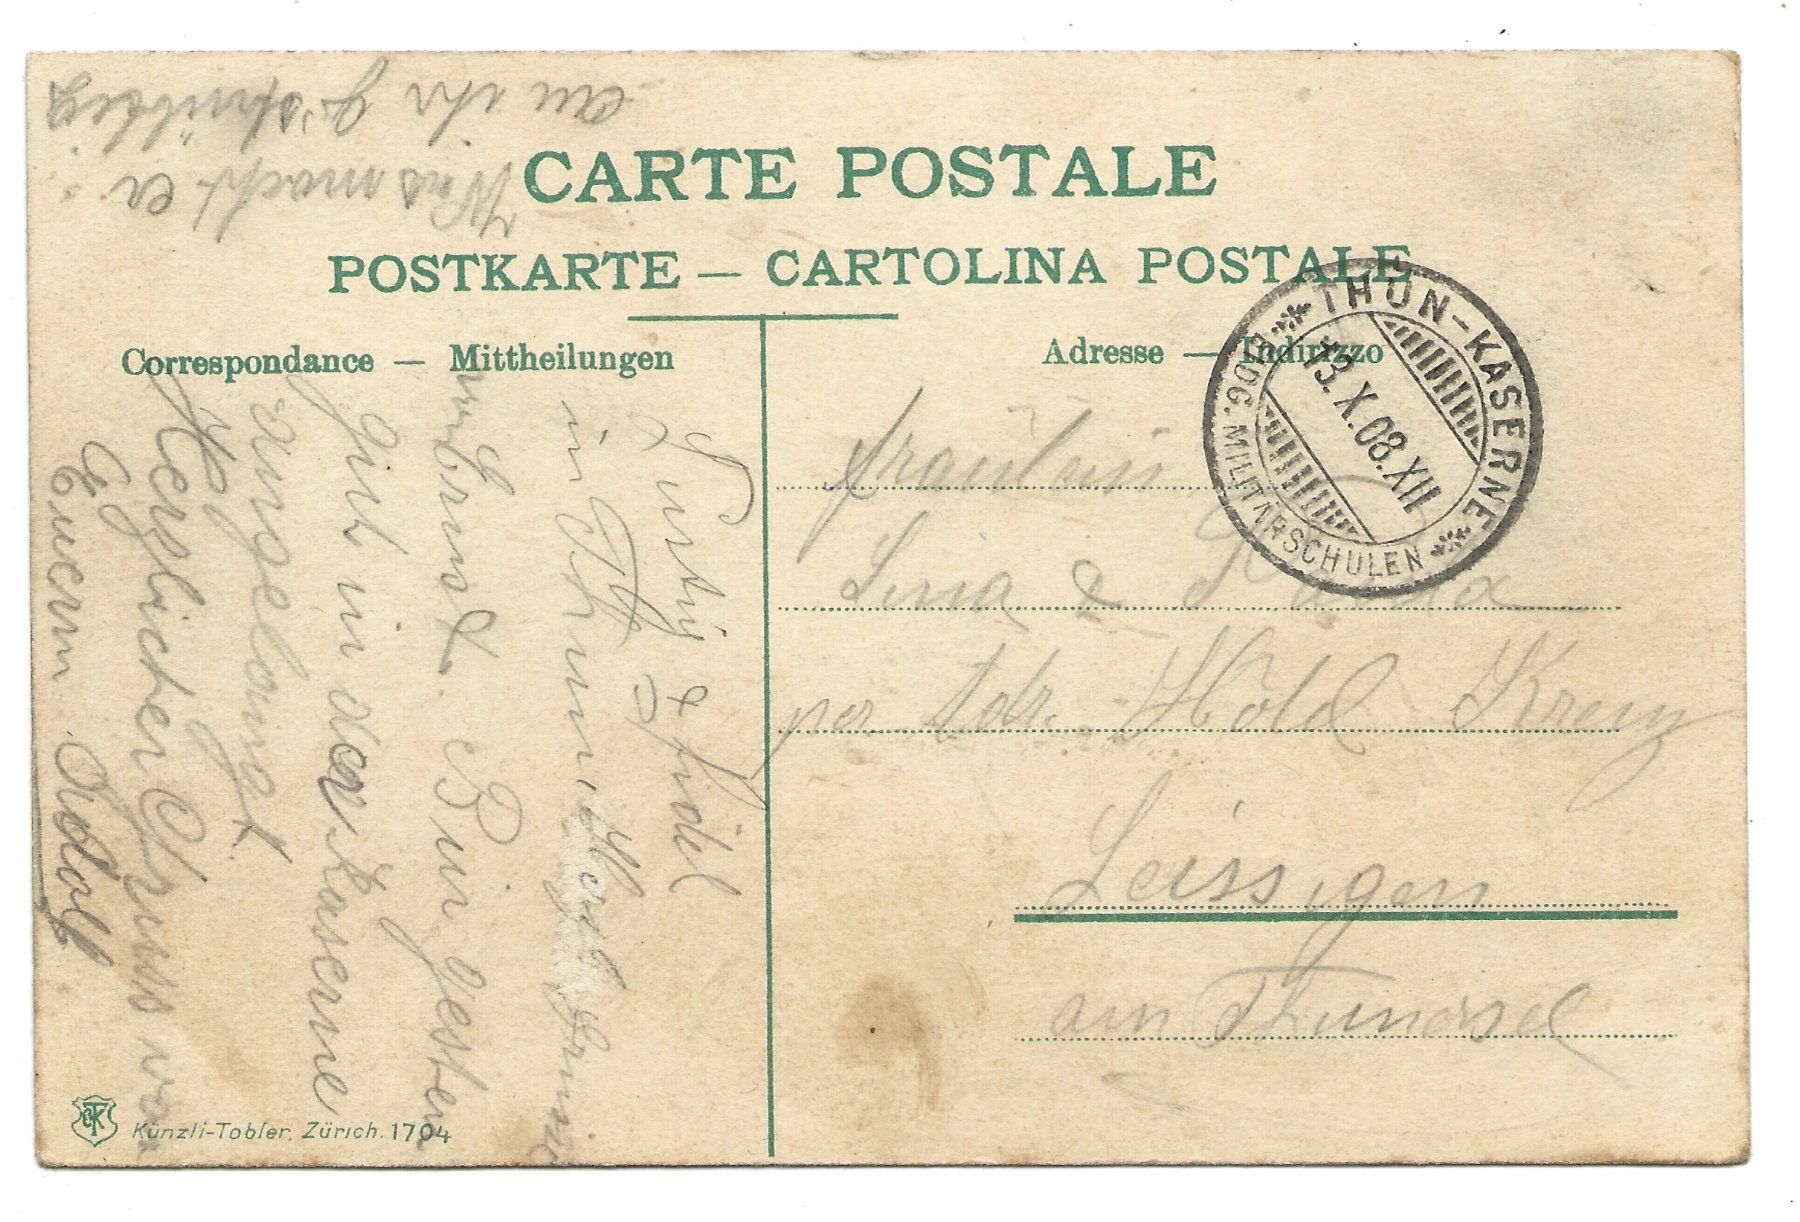 CARTE POSTALE
POSTKARTE — CARTOLINA POSTALE
Correspondance — Mittheilungen
Adresse — Indirizzo
THUN-KASERNE
13.X.08.XII
EIDG. MILITÄRSCHULEN
Fräulein
Lina &
per Adr. Hold Kreuz
Leissigen
am Thunersee
Lustig & fidel
in Thun
und Ernst. Bin gestern
Gut in der Kaserne
angelangt
Herzlicher Gruss von
Euerm Adolf
Was macht er
an ihr
Künzli-Tobler, Zürich. 1704